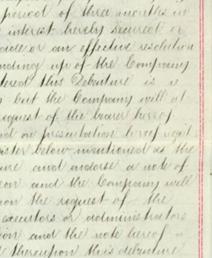 period of three months in
interest hereby secured or
or an effective resolution
winding up of the Company
this Debenture is
but the Company will at
request of the bearer hereof
and on presentation hereof
below mentioned as the
and endorse a note of
and the Company will
upon the request of the
executors or administrators
and the note hereof
thereupon this debenture